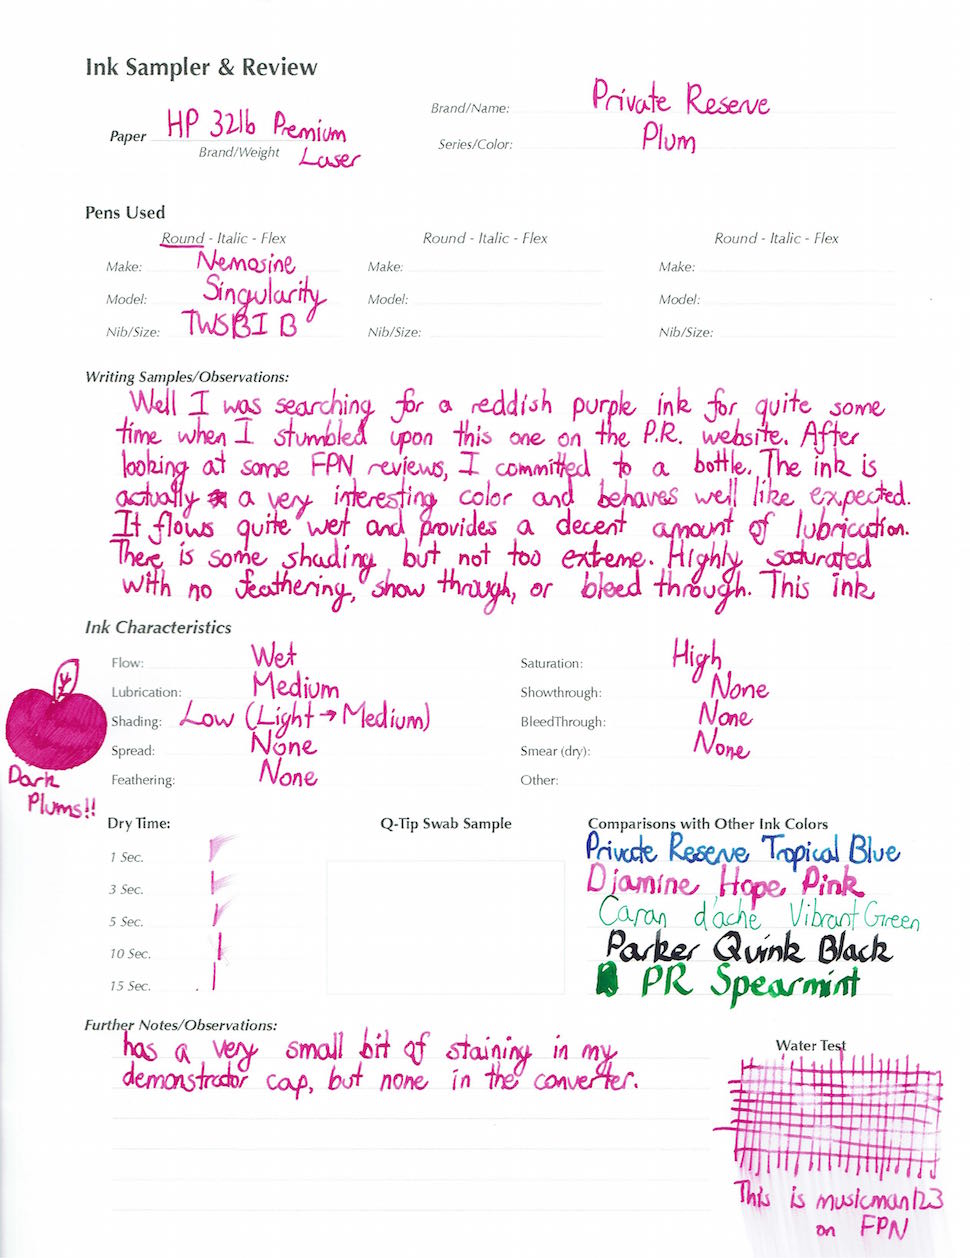 Ink Sampler & Review
Brand/Name: Private Reserve
Paper HP 32lb Premium Laser
Brand/Weight
Series/Color: Plum
Pens Used
Round - Italic - Flex
Make: Nemosine
Model: Singularity
Nib/Size: TWSBI B
Round - Italic - Flex
Make:
Model:
Nib/Size:
Round - Italic - Flex
Make:
Model:
Nib/Size:
Writing Samples/Observations:
Well I was searching for a reddish purple ink for quite some
time when I stumbled upon this one on the P.R. website. After
looking at some FPN reviews, I committed to a bottle. The ink is
actually a very interesting color and behaves well like expected.
It flows quite wet and provides a decent amount of lubrication.
There is some shading, but not too extreme. Highly saturated
with no feathering, show through, or bleed through. This ink
Ink Characteristics
Flow: Wet
Lubrication: Medium
Shading: Low (Light → Medium)
Spread: None
Feathering: None
Saturation: High
Showthrough: None
BleedThrough: None
Smear (dry): None
Other:
Dark
Plums!!
Dry Time:
1 Sec.
3 Sec.
5 Sec.
10 Sec.
15 Sec.
Q-Tip Swab Sample
Comparisons with Other Ink Colors
Private Reserve Tropical Blue
Diamine Hope Pink
Caran d'ache Vibrant Green
Parker Quink Black
PR Spearmint
Further Notes/Observations:
has a very small bit of staining in my
demonstrator cap, but none in the converter.
Water Test
This is musicman123
on FPN